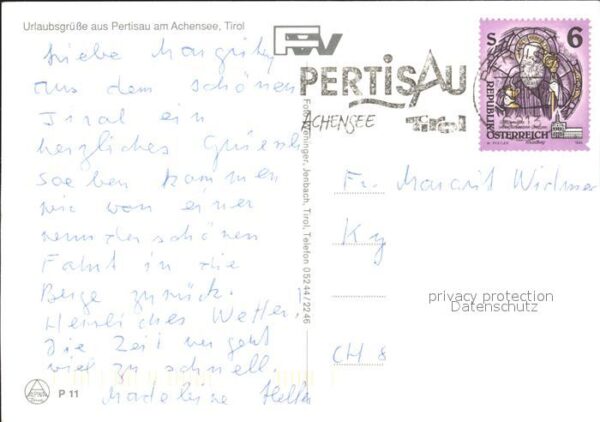 Urlaubsgrüße aus Pertisau am Achensee, Tirol
Liebe
aus dem schönen
Tirol ein
herzliches
soeben kommen
wir von einer
wunderschönen
Fahrt in die
Berge zurück.
Herrliches Wetter!
Die Zeit vergeht
viel zu schnell.
Madeleine
P 11
Jenbach, Tirol, Telefon 05244/2246
PERTISAU
ACHENSEE
Tirol
S 6
REPUBLIK
ÖSTERREICH
Fr. Margrit Widmer
Ky
CH 8
privacy protection
Datenschutz